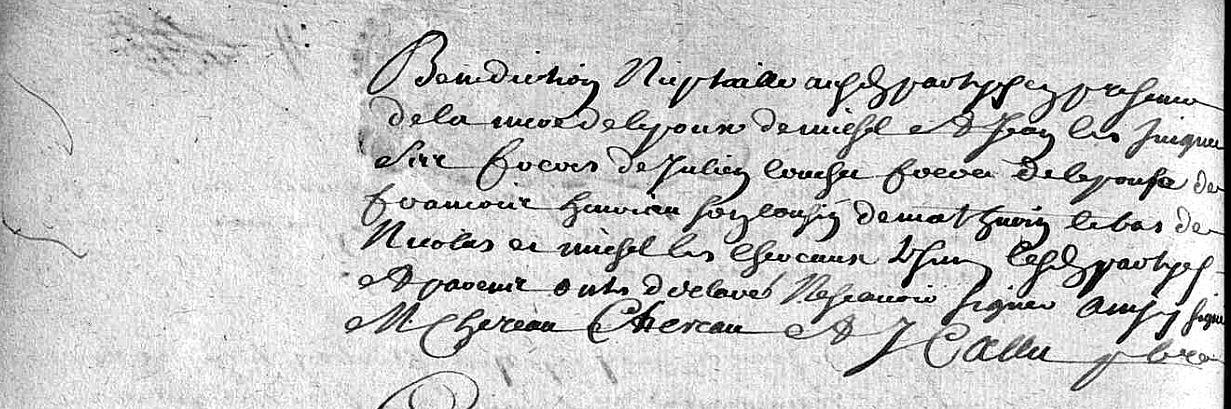 Benediction Nuptialle ausd partyes en presence
de la mere de lepoux de michel et Jean les
ses freres de Julien frere de lepouse de
francois son cousin de mathurin lebas de
Nicolas et michel les chereaux lesd partyes
et parens onts declarés Ne scavoir signer ainsy signé
M Chereau Chereau et J Callu pbre